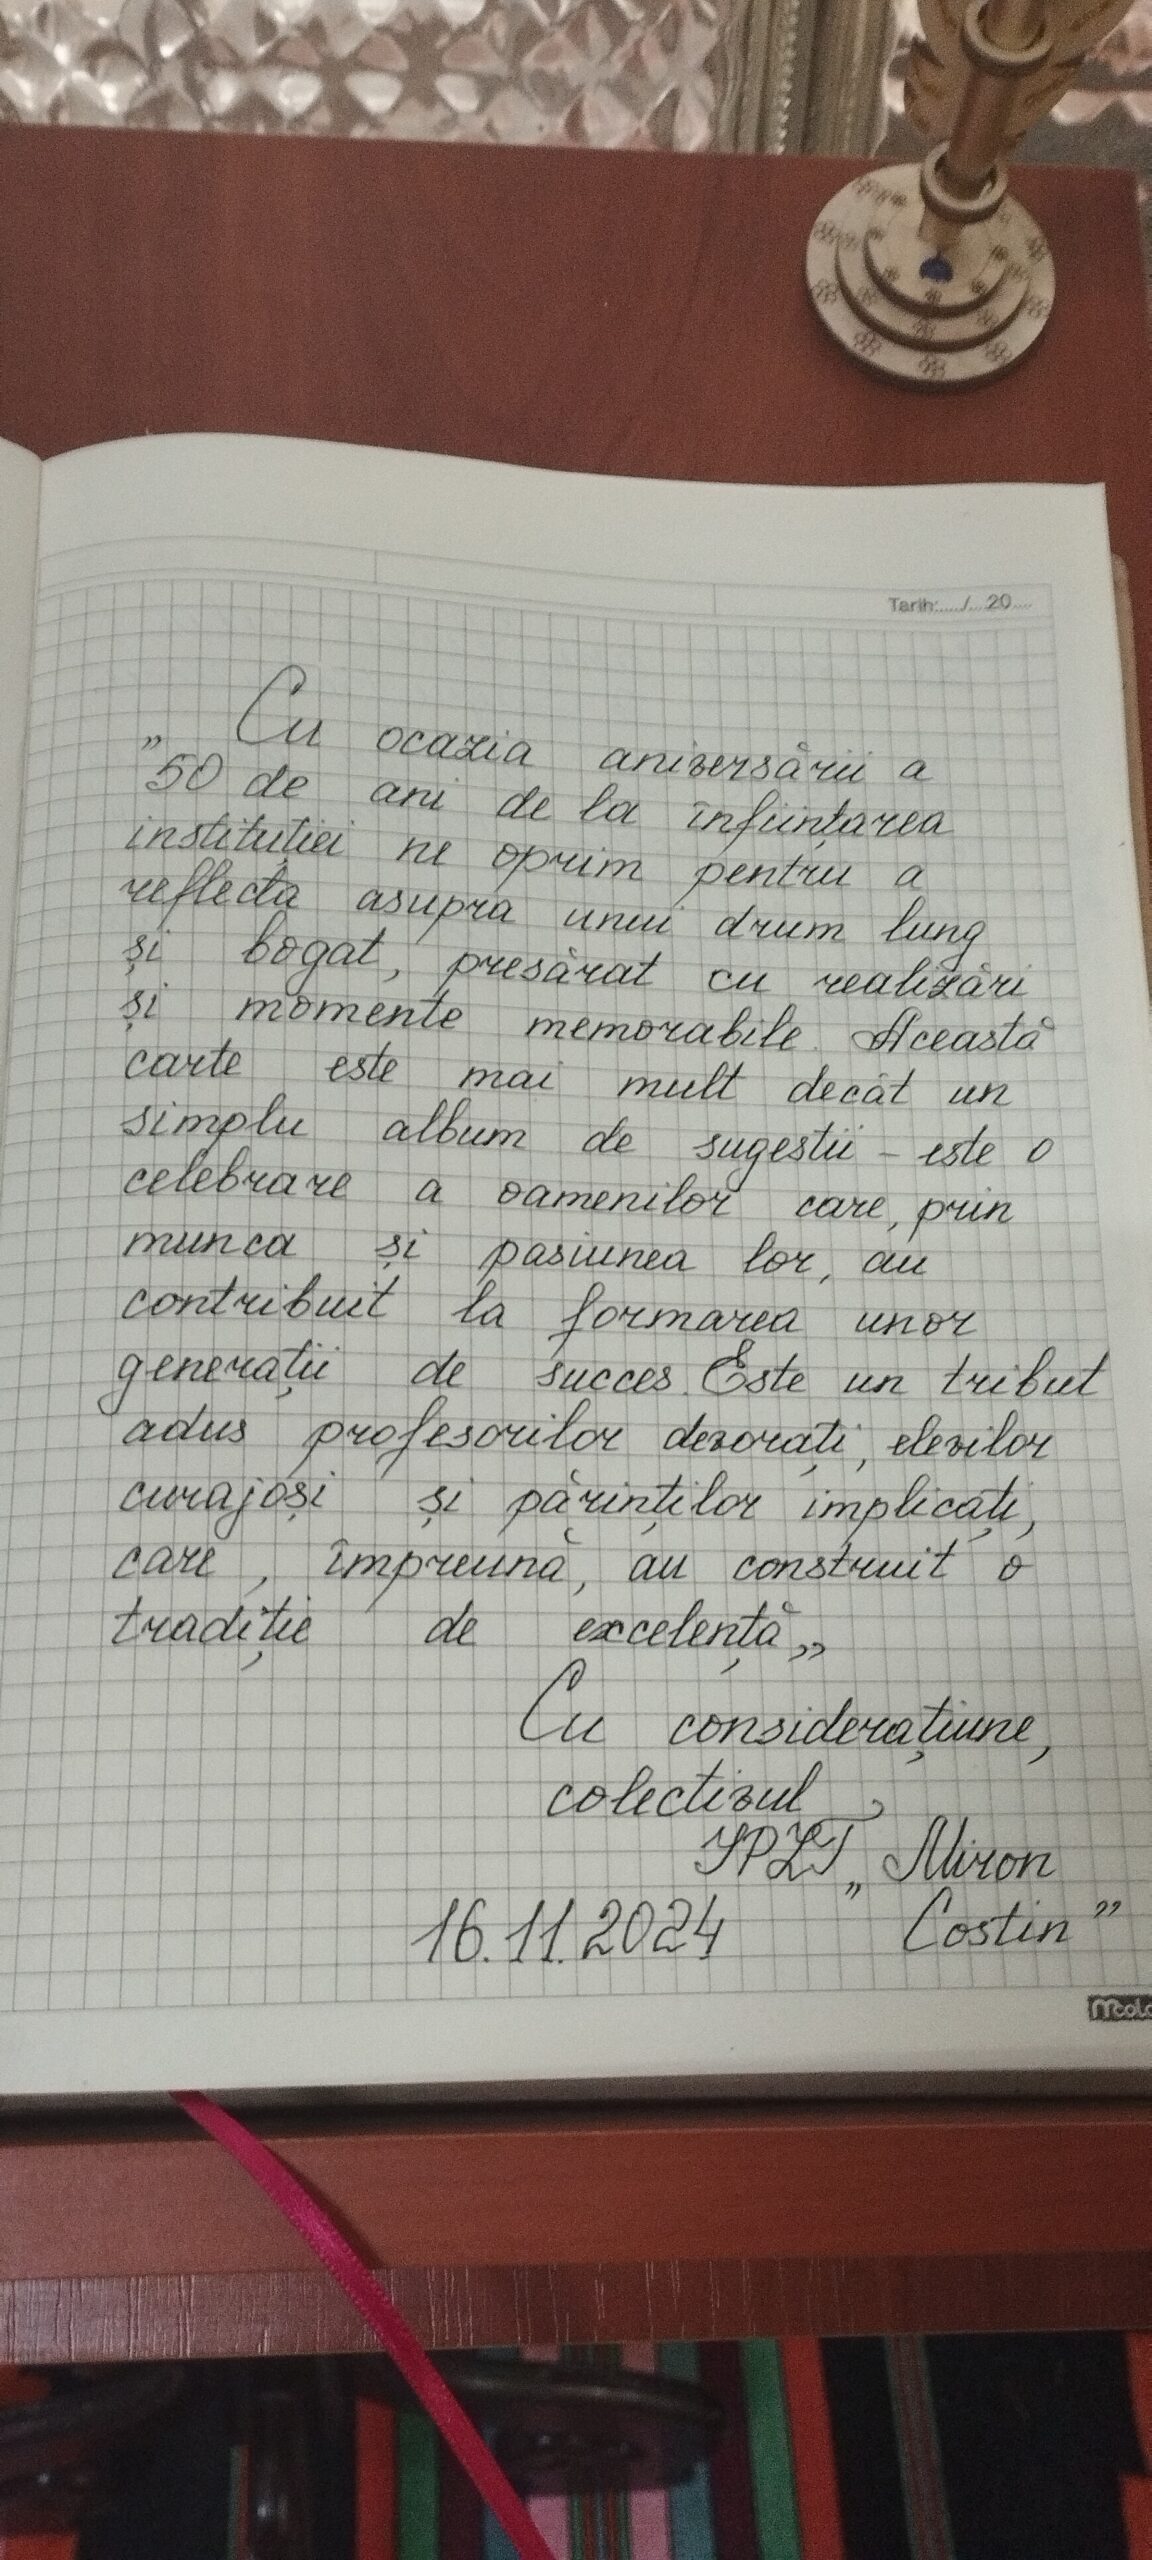 Tarih:...../....20....
„ Cu ocazia aniversării a
50 de ani de la înființarea
instituției ne oprim pentru a
reflecta asupra unui drum lung
și bogat, presărat cu realizări
și momente memorabile. Această
carte este mai mult decât un
simplu album de sugestii – este o
celebrare a oamenilor care, prin
munca și pasiunea lor, au
contribuit la formarea unor
generații de succes. Este un tribut
adus profesorilor devorați, elevilor
curajoși și părinților implicați,
care, împreună, au construit o
tradiție de excelență,,
Cu considerațiune,
colectivul
IPLT „ Miron
16.11.2024 Costin ”